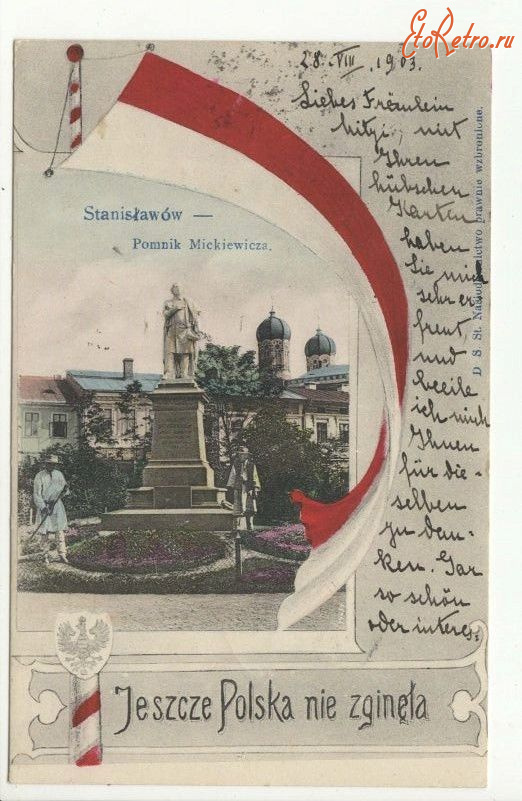 EtoRetro.ru
28. VIII. 1903.
Liebes Fräulein
mit
Ihren
hübschen
Karten
haben
Sie mich
sehr er
freut,
und
beeile
ich mich
Ihnen
für die-
selben
zu dan-
ken. Gar
so schön
oder interes
Stanisławów —
Pomnik Mickiewicza.
D. S. St. prawnie wzbronione.
Jeszcze Polska nie zginęła